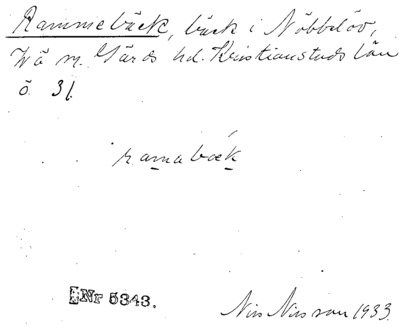 Rammebäck, bäck i Nöbbelöv,
Wä m. Gärds hd. Kristianstads län
ö 31
ramabæk
Nr 5343.
Nils Nilsson 1933.